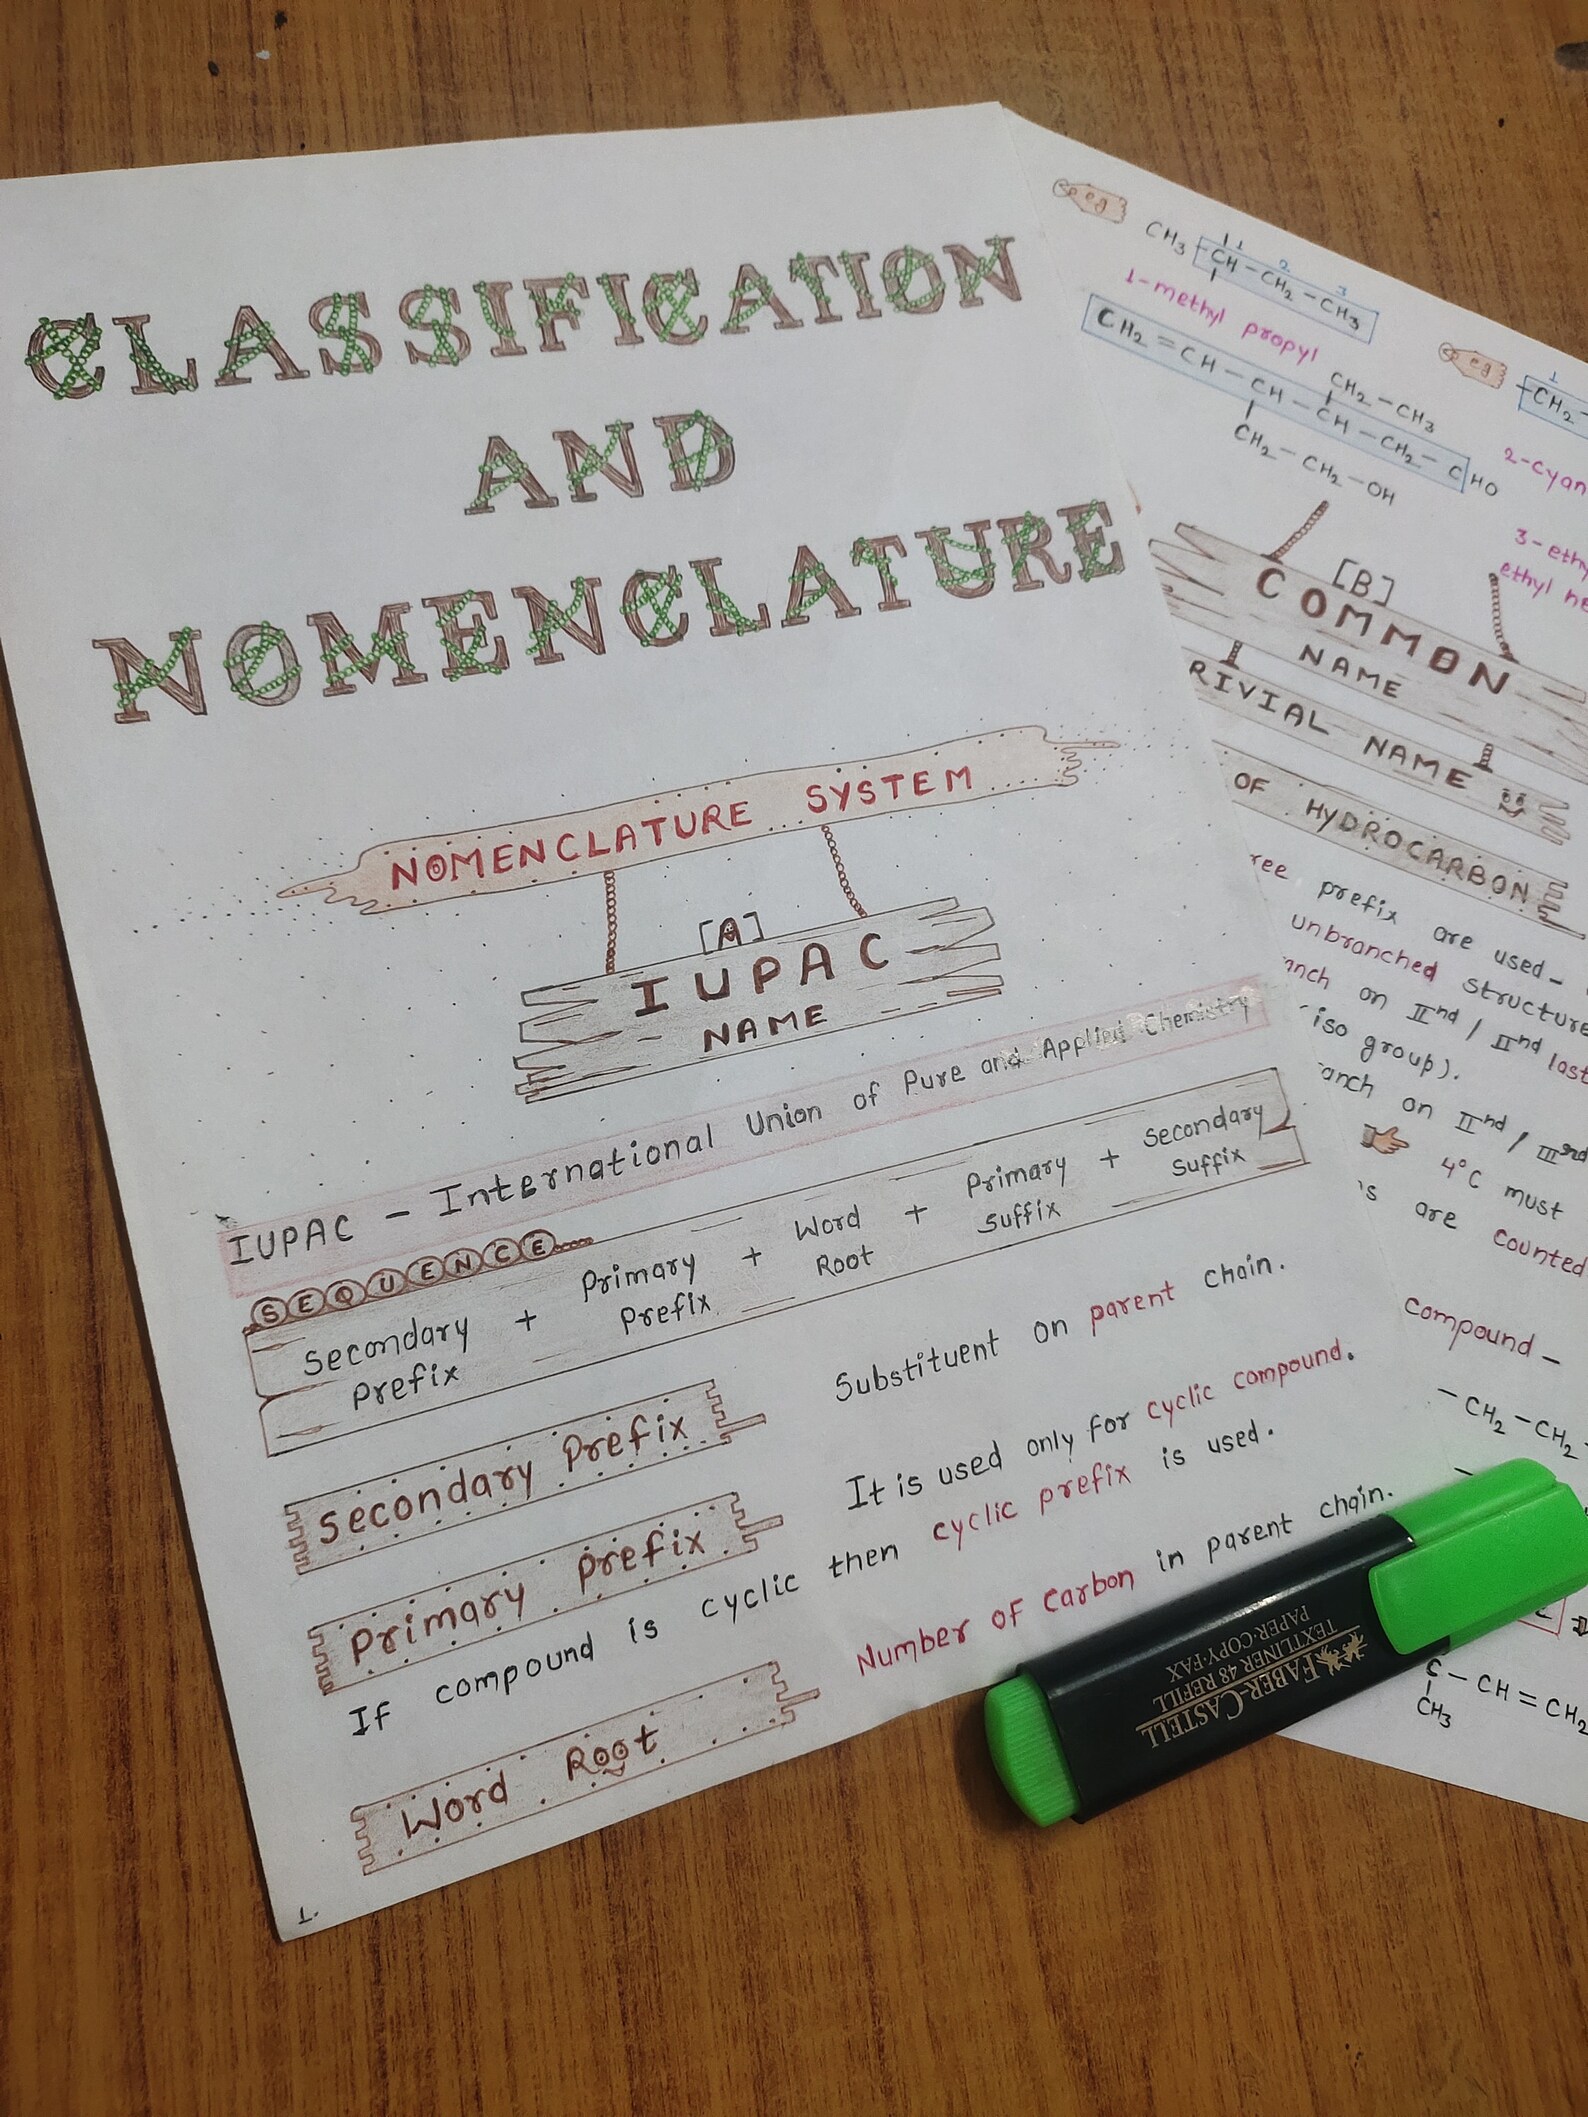 CLASSIFICATION
AND
NOMENCLATURE
NOMENCLATURE SYSTEM
[A]
IUPAC
NAME
IUPAC - International Union of Pure and Applied Chemistry
SEQUENCE....
Secondary Prefix + Primary Prefix + Word Root + Primary Suffix + Secondary Suffix
Secondary Prefix
Substituent on parent chain.
Primary Prefix
It is used only for cyclic compound.
If compound is cyclic then cyclic prefix is used.
Word Root
Number of Carbon in parent chain.
1.
eg
CH3 -CH-CH2-CH3
1 2 3
1-methyl propyl
eg
1
-CH2-
2-cyan
CH2=CH-CH-CH-CH2-CHO
CH2-CH3
CH2-CH2-OH
3-ethy
ethyl he
[B]
COMMON
NAME
RIVIAL NAME
OF HYDROCARBON
ree prefix are used-
unbranched structure
anch on IInd / IInd last
iso group).
anch on IInd / IIIrd
4°C must
are counted
compound-
-CH2-CH2-
C-CH=CH2
CH3
FABER-CASTELL
TEXTLINER 48 REFILL
PAPER-COPY-FAX